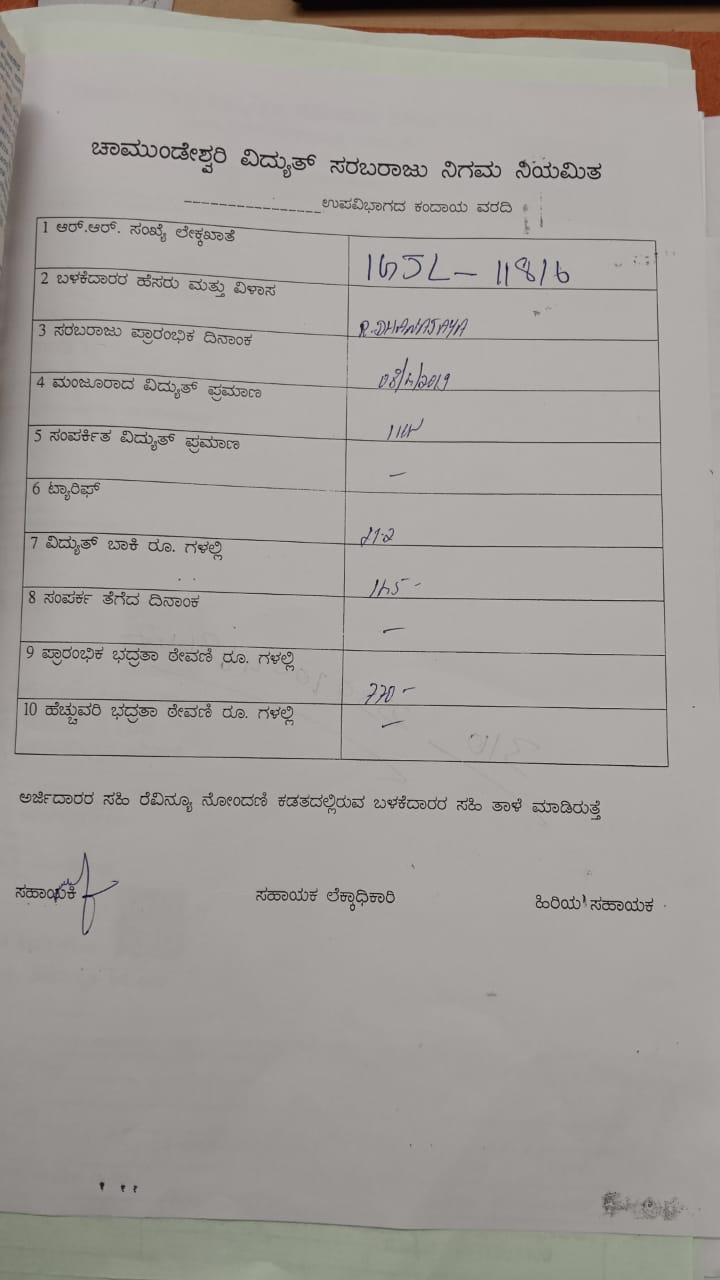 ಚಾಮುಂಡೇಶ್ವರಿ ವಿದ್ಯುತ್ ಸರಬರಾಜು ನಿಗಮ ನಿಯಮಿತ
________________ಉಪವಿಭಾಗದ ಕಂದಾಯ ವರದಿ
1 ಆರ್.ಆರ್. ಸಂಖ್ಯೆ ಲೇಕ್ಕಖಾತೆ
2 ಬಳಕೆದಾರರ ಹೆಸರು ಮತ್ತು ವಿಳಾಸ
R. DHANAJAYA
3 ಸರಬರಾಜು ಪ್ರಾರಂಭಿಕ ದಿನಾಂಕ
4 ಮಂಜೂರಾದ ವಿದ್ಯುತ್ ಪ್ರಮಾಣ
5 ಸಂಪರ್ಕಿತ ವಿದ್ಯುತ್ ಪ್ರಮಾಣ
–
6 ಟ್ಯಾರಿಫ್
7 ವಿದ್ಯುತ್ ಬಾಕಿ ರೂ. ಗಳಲ್ಲಿ
8 ಸಂಪರ್ಕ ತೆಗೆದ ದಿನಾಂಕ
–
9 ಪ್ರಾರಂಭಿಕ ಭದ್ರತಾ ಠೇವಣಿ ರೂ. ಗಳಲ್ಲಿ
770 –
10 ಹೆಚ್ಚುವರಿ ಭದ್ರತಾ ಠೇವಣಿ ರೂ. ಗಳಲ್ಲಿ
–
ಅರ್ಜಿದಾರರ ಸಹಿ ರೆವಿನ್ಯೂ ನೋಂದಣಿ ಕಡತದಲ್ಲಿರುವ ಬಳಕೆದಾರರ ಸಹಿ ತಾಳೆ ಮಾಡಿರುತ್ತೆ
ಸಹಾಯಕಿ ಸಹಾಯಕ ಲೆಕ್ಕಾಧಿಕಾರಿ ಹಿರಿಯ ಸಹಾಯಕ